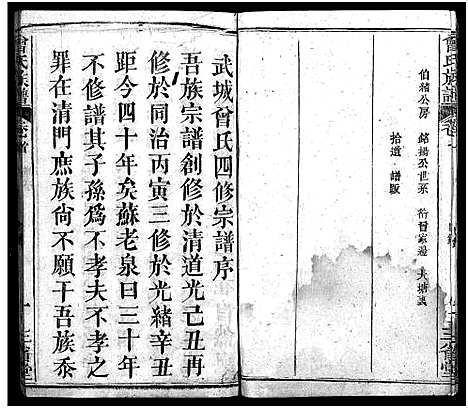 曾氏族譜
卷一
伯緒公房　銘揚公世系
拾道・譜版
三省堂
武城曾氏四修宗譜序
吾族宗譜創修於清道光己丑再
修於同治丙寅三修於光緒辛丑
距今四十年矣蘇老泉曰三十年
不修譜其子孫爲不孝夫不孝之
罪在清門庶族尙不願干吾族忝
曾氏族譜
卷首
一
三省堂